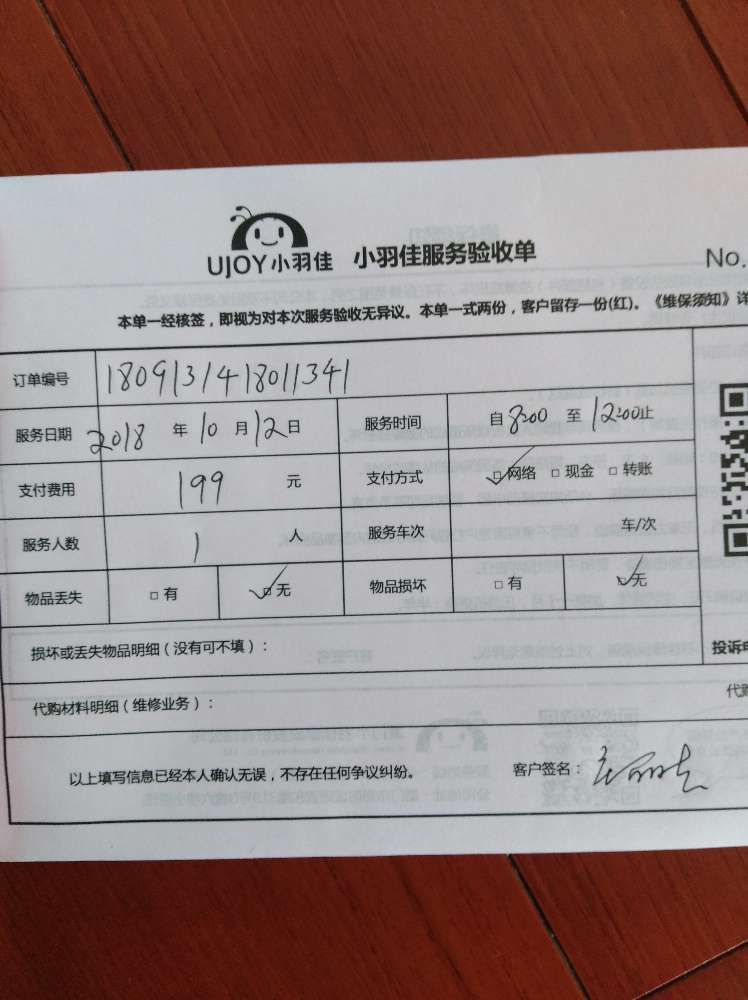 UJOY小羽佳 小羽佳服务验收单
No.
本单一经核签，即视为对本次服务验收无异议。本单一式两份，客户留存一份(红)。《维保须知》详
订单编号 180913141801​1341
服务日期 2018 年 10 月 12 日 服务时间 自 8:00 至 12:00 止
支付费用 199 元 支付方式 ☑网络 □现金 □转账
服务人数 1 人 服务车次 车/次
物品丢失 □有 ☑无 物品损坏 □有 ☑无
损坏或丢失物品明细（没有可不填）：
投诉电
代购材料明细（维修业务）：
代购
以上填写信息已经本人确认无误，不存在任何争议纠纷。 客户签名：